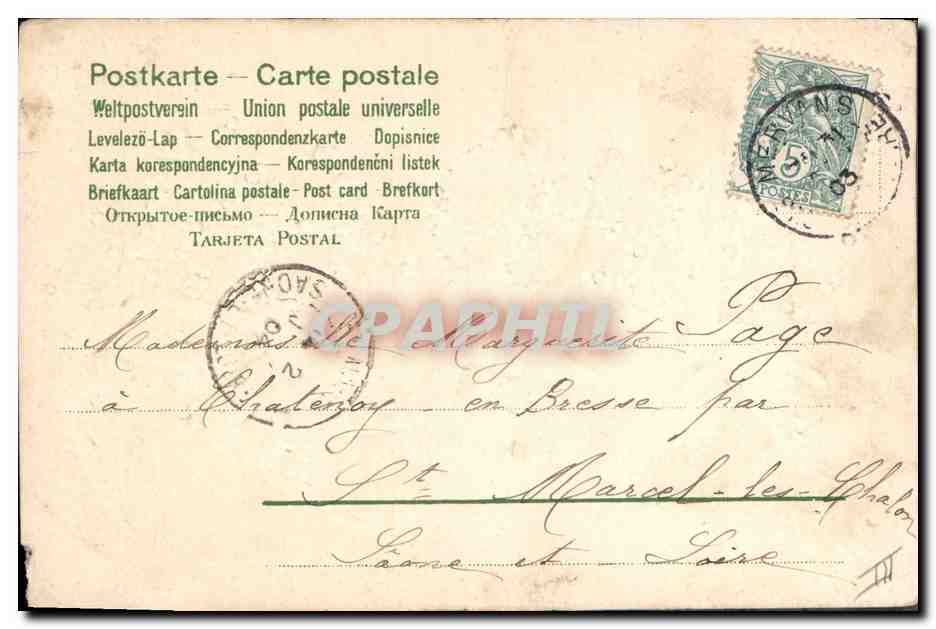 Postkarte – Carte postale
Weltpostverein – Union postale universelle
Levelező-Lap – Correspondenzkarte Dopisnice
Karta korespondencyjna – Korespondenční listek
Briefkaart - Cartolina postale - Post card Brefkort
Открытое-письмо – Дописна Карта
TARJETA POSTAL
MERVANS
03
5
POSTES
SAONE
CPAPHIL
Mademoiselle Marguerite Page
à Chatenoy en Bresse par
St Marcel-les-Chalon
Saone et Loire